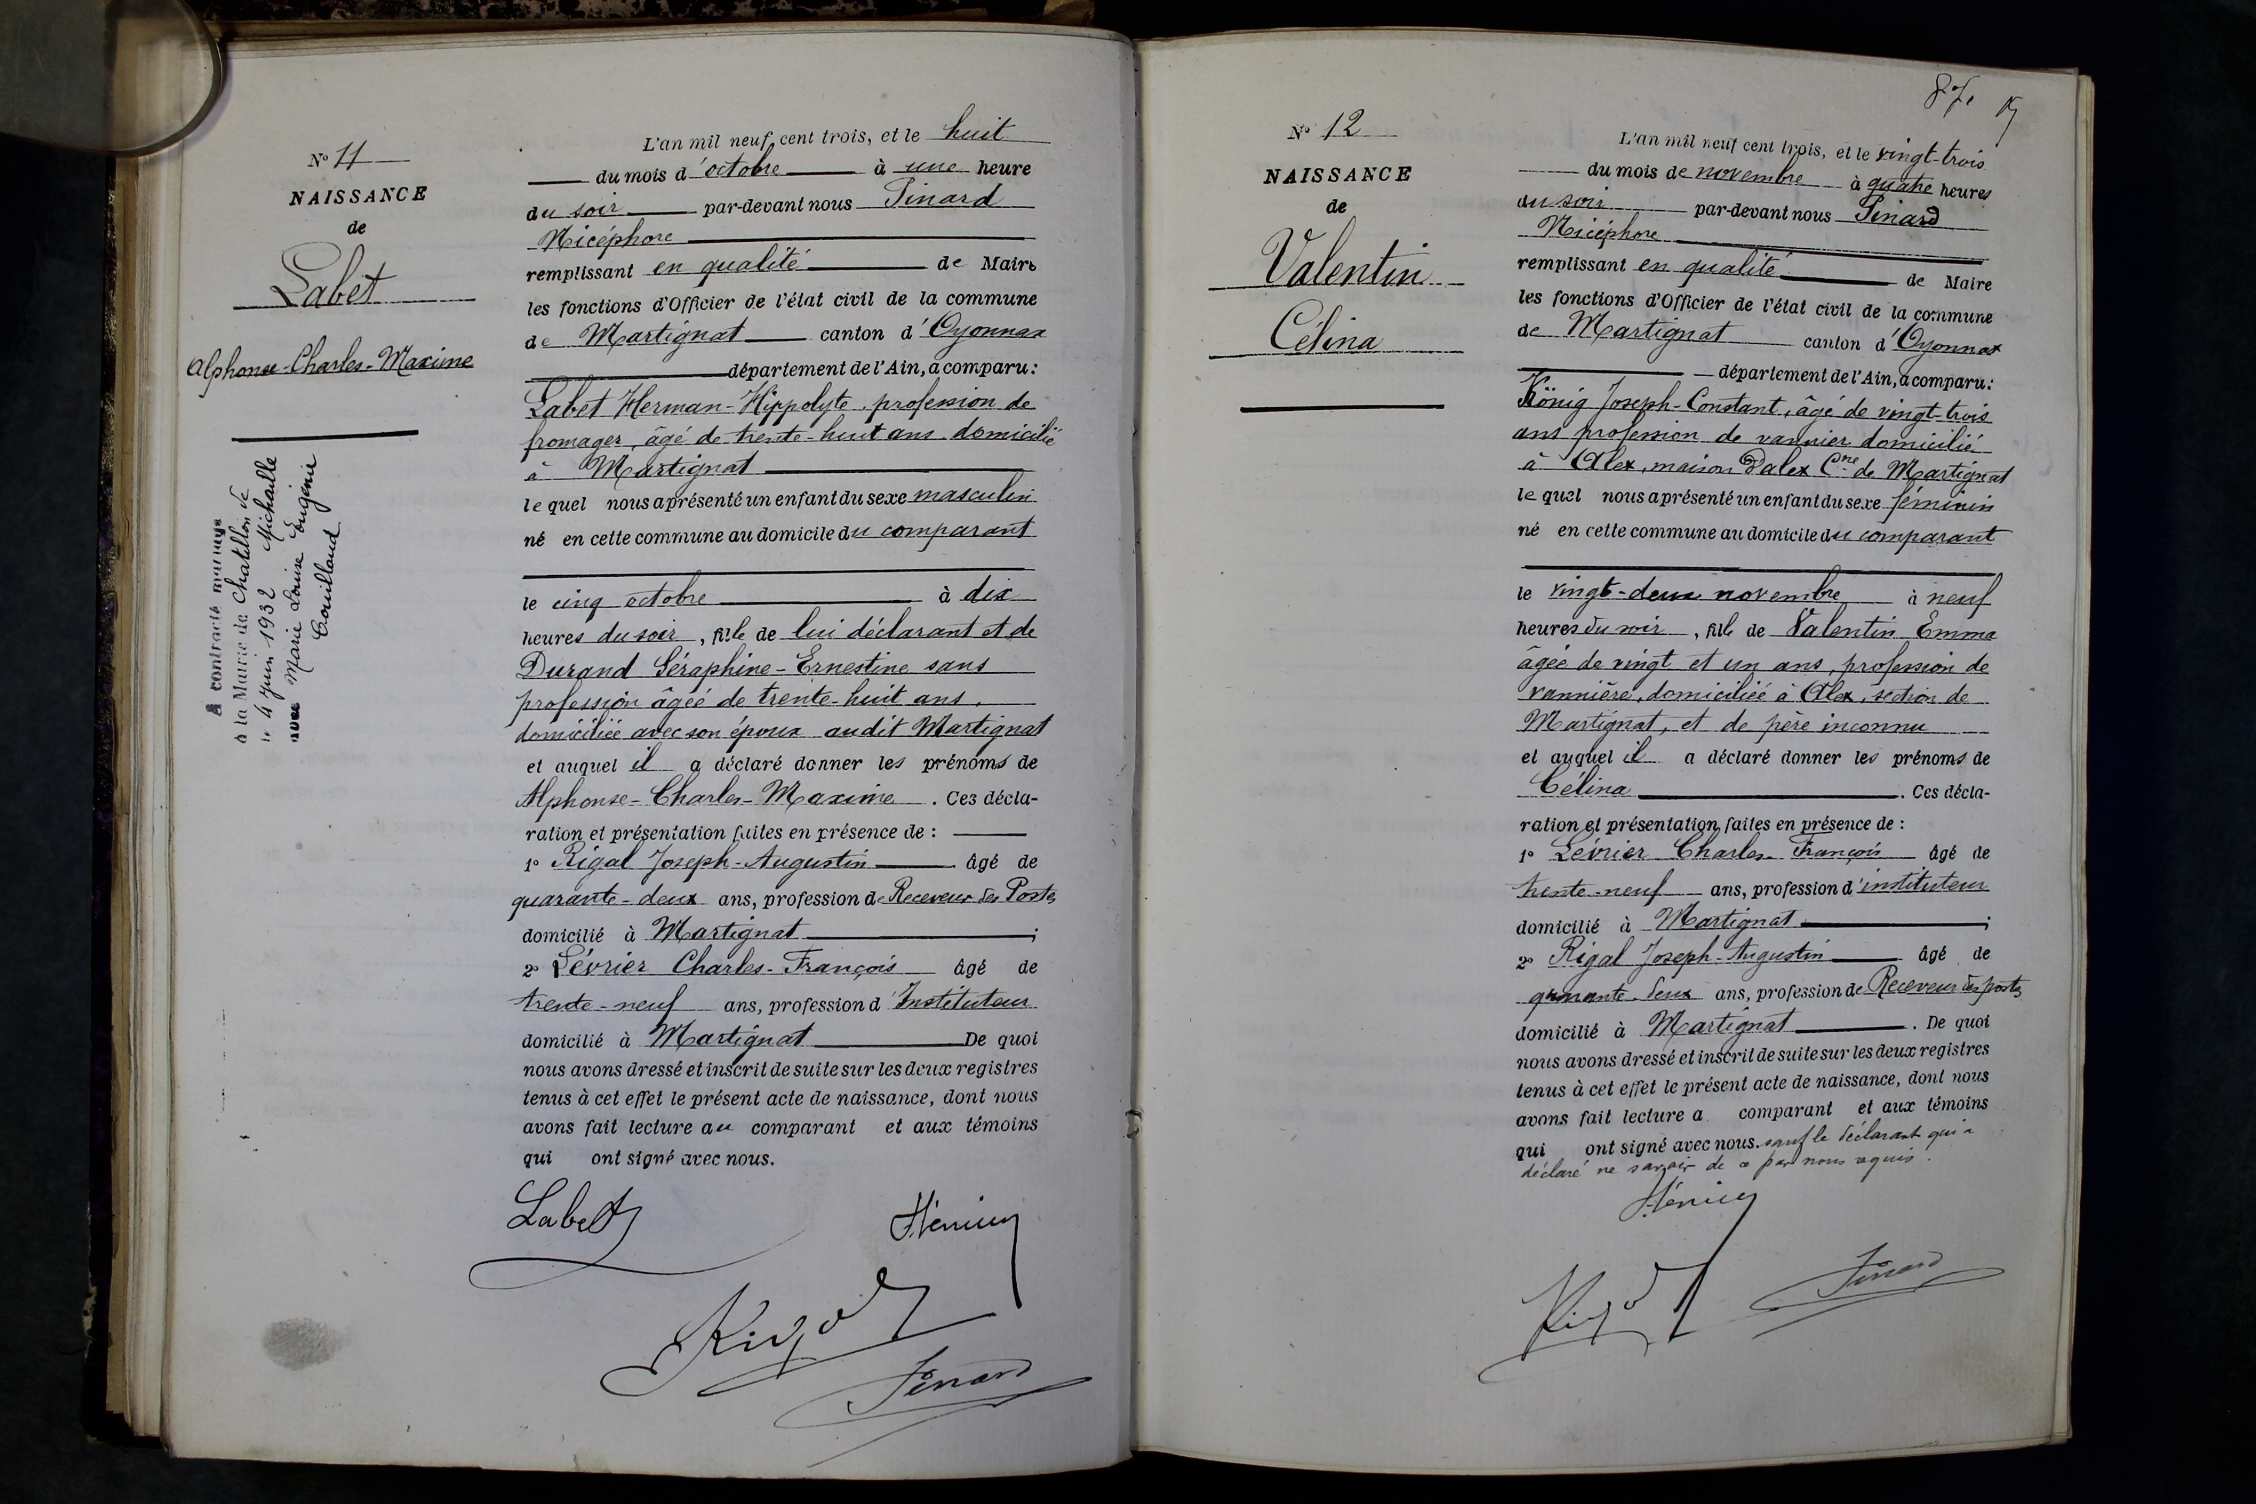 N° 11
NAISSANCE
de
Labet
Alphonse-Charles-Maxime
A contracté mariage
à la Mairie de Chatillon de
le 4 juin 1932 Michaille
avec Marie Louise Eugénie
L'an mil neuf cent trois, et le huit
du mois d'octobre à une heure
du soir par-devant nous Pinard
Nicéphore
remplissant en qualité de Maire
les fonctions d'Officier de l'état civil de la commune
de Martignat canton d'Oyonnax
département de l'Ain, a comparu:
Labet Herman-Hippolyte, profession de
fromager, âgé de trente-huit ans domicilié
à Martignat
lequel nous a présenté un enfant du sexe masculin
né en cette commune au domicile du comparant
le cinq octobre à dix
heures du soir, fils de lui déclarant et de
Durand Séraphine-Ernestine sans
profession âgée de trente-huit ans,
domiciliée avec son époux audit Martignat
et auquel il a déclaré donner les prénoms de
Alphonse-Charles-Maxime. Ces décla-
ration et présentation faites en présence de :
1° Rigal Joseph-Augustin âgé de
quarante-deux ans, profession de Receveur des Postes
domicilié à Martignat ;
2° Lévrier Charles-François âgé de
trente-neuf ans, profession d'Instituteur
domicilié à Martignat De quoi
nous avons dressé et inscrit de suite sur les deux registres
tenus à cet effet le présent acte de naissance, dont nous
avons fait lecture au comparant et aux témoins
qui ont signé avec nous.
Labet
Rigal
Pinard
87.
N° 12
NAISSANCE
de
Valentin
Célina
L'an mil neuf cent trois, et le vingt-trois
du mois de novembre à quatre heures
du soir par-devant nous Pinard
Nicéphore
remplissant en qualité de Maire
les fonctions d'Officier de l'état civil de la commune
de Martignat canton d'Oyonnax
département de l'Ain, a comparu:
König Joseph-Constant, âgé de vingt-trois
ans profession de vannier domicilié
à Alex, maison Dalex Cne de Martignat
lequel nous a présenté un enfant du sexe féminin
né en cette commune au domicile du comparant
le vingt-deux novembre à neuf
heures du soir, fille de Valentin Emma
âgée de vingt et un ans, profession de
vannière, domiciliée à Alex, section de
Martignat, et de père inconnu
et auquel il a déclaré donner les prénoms de
Célina. Ces décla-
ration et présentation faites en présence de :
1° Lévrier Charles-François âgé de
trente-neuf ans, profession d'instituteur
domicilié à Martignat ;
2° Rigal Joseph-Augustin âgé de
quarante-deux ans, profession de Receveur des postes
domicilié à Martignat. De quoi
nous avons dressé et inscrit de suite sur les deux registres
tenus à cet effet le présent acte de naissance, dont nous
avons fait lecture a comparant et aux témoins
qui ont signé avec nous. sauf le déclarant qui a
déclaré ne savoir de ce par nous requis.
Rigal
Pinard